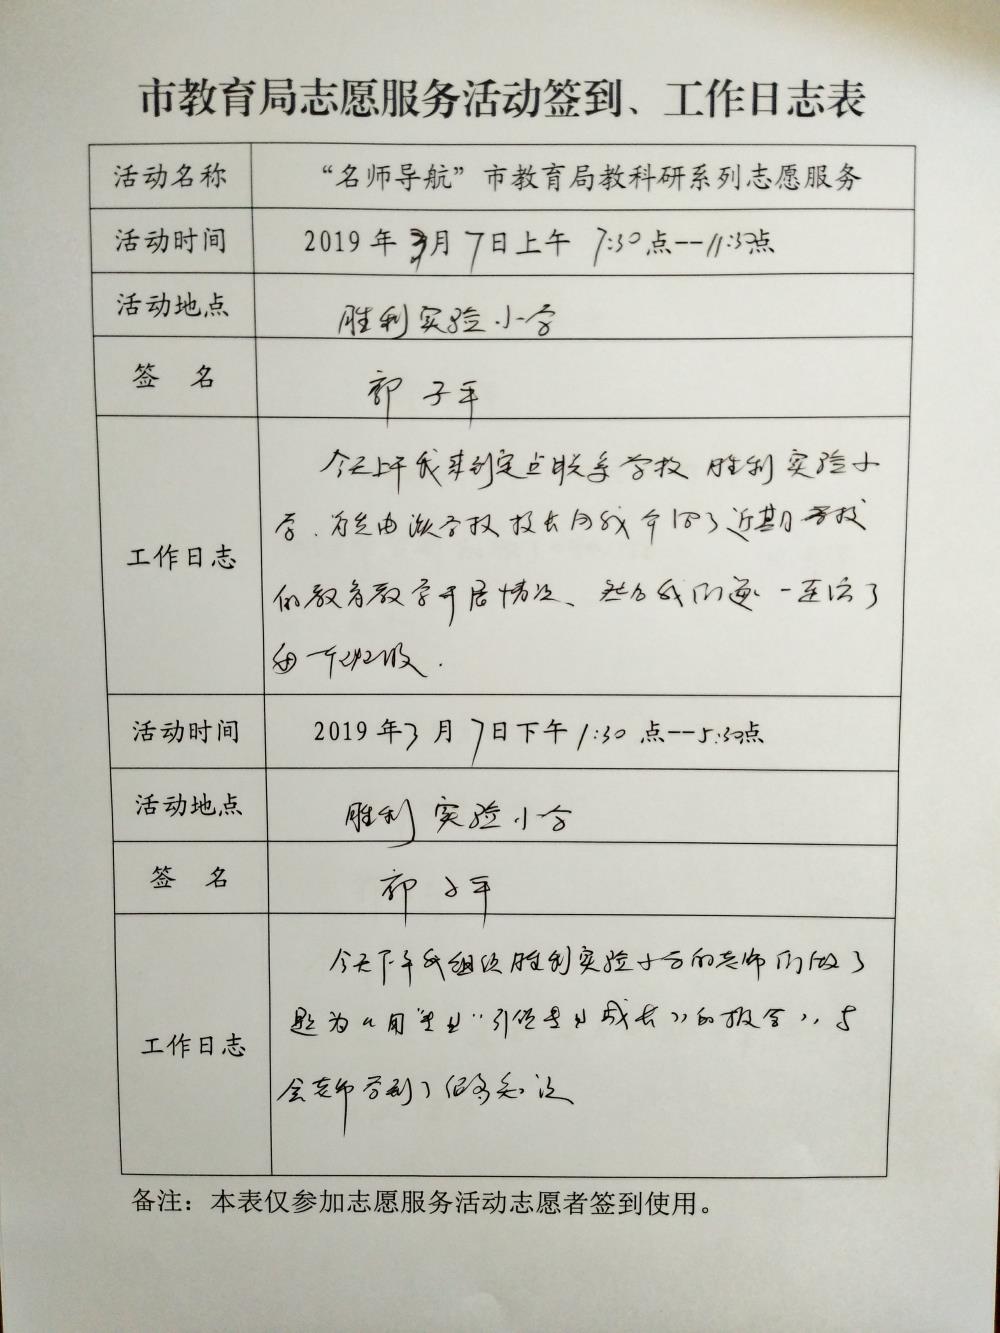 市教育局志愿服务活动签到、工作日志表
活动名称 “名师导航”市教育局教科研系列志愿服务
活动时间 2019年3月7日上午 7:30点--11:30点
活动地点 胜利实验小学
签 名 郭子平
工作日志
今天上午我来到定点联系学校胜利实验小
学.首先由该学校校长向我介绍了近期学校
的教育教学开展情况、然后我们逐一走访了
每一个班级.
活动时间 2019年3月7日下午1:30点--5:30点
活动地点 胜利实验小学
签 名 郭子平
工作日志
今天下午我组织胜利实验小学的老师们做了
题为“用 引领 成长”的报告,与
会老师学到了很多知识
备注：本表仅参加志愿服务活动志愿者签到使用。